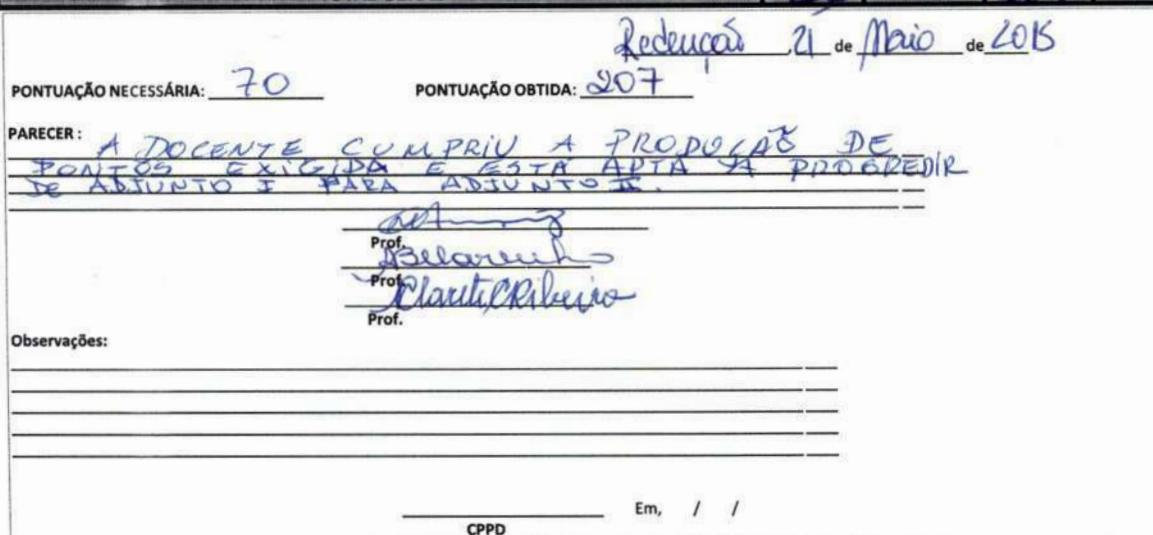 Redenção, 21 de Maio de 2015
PONTUAÇÃO NECESSÁRIA: 70 PONTUAÇÃO OBTIDA: 207
PARECER: A DOCENTE CUMPRIU A PRODUÇÃO DE
PONTOS EXIGIDA E ESTÁ APTA A PROGREDIR
DE ADJUNTO I PARA ADJUNTO II.
Prof.
Prof.
ClaritiCRibeiro
Prof.
Observações:
Em, / /
CPPD